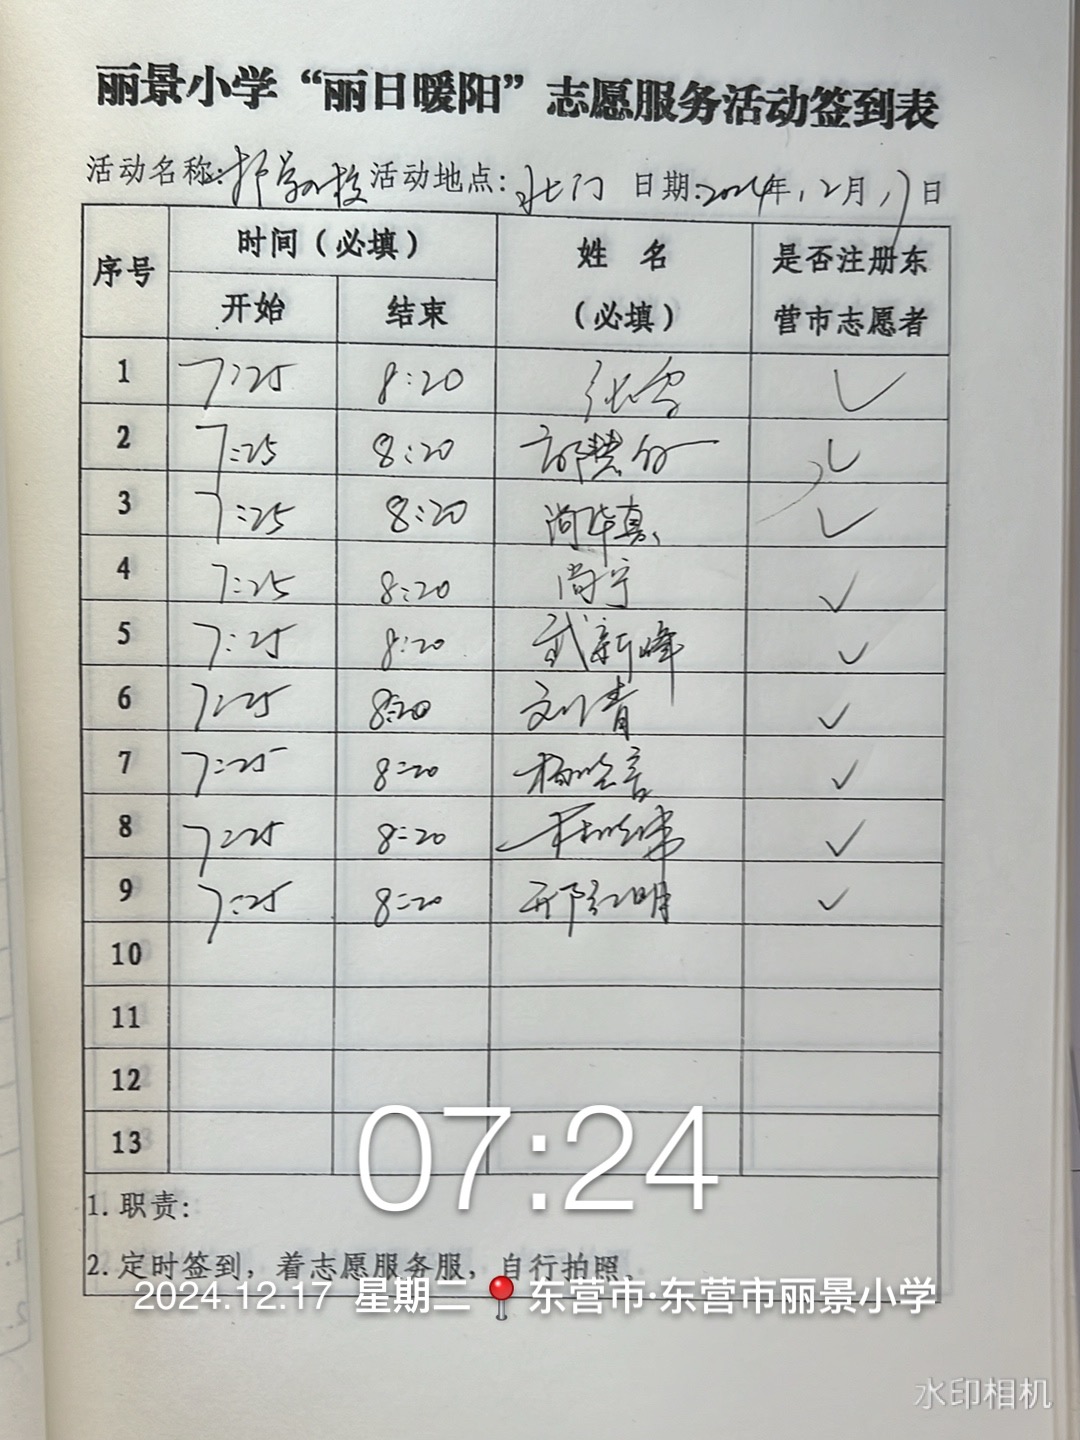 丽景小学“丽日暖阳”志愿服务活动签到表
活动名称:护学入校 活动地点:北门 日期:2024年12月17日
序号 时间(必填) 姓 名 (必填) 是否注册东营市志愿者
开始 结束
1 7:25 8:20 张雪 ✓
2 7:25 8:20 ✓
3 7:25 8:20 尚华真 ✓
4 7:25 8:20 尚宁 ✓
5 7:25 8:20 武新峰 ✓
6 7:25 8:20 刘青 ✓
7 7:25 8:20 ✓
8 7:25 8:20 ✓
9 7:25 8:20 邢红明 ✓
10
11
12
13
1.职责:
2.定时签到,着志愿服务服,自行拍照
07:24
2024.12.17 星期二 东营市·东营市丽景小学
水印相机